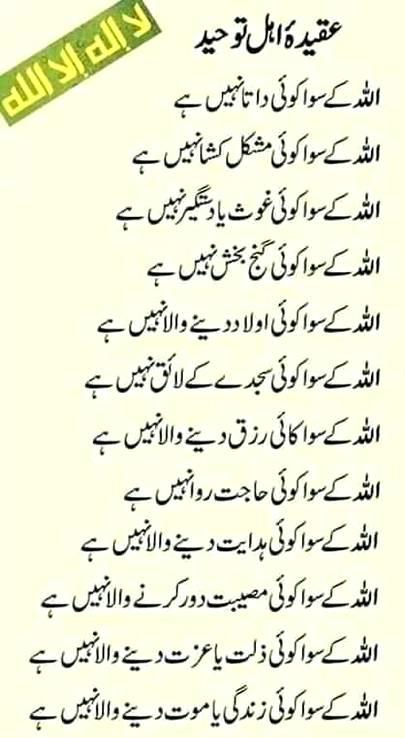 لا إله إلا الله
عقیدۂ اہل توحید
اللہ کے سوا کوئی داتا نہیں ہے
اللہ کے سوا کوئی مشکل کشا نہیں ہے
اللہ کے سوا کوئی غوث یا دستگیر نہیں ہے
اللہ کے سوا کوئی گنج بخش نہیں ہے
اللہ کے سوا کوئی اولاد دینے والا نہیں ہے
اللہ کے سوا کوئی سجدے کے لائق نہیں ہے
اللہ کے سوا کائی رزق دینے والا نہیں ہے
اللہ کے سوا کوئی حاجت روا نہیں ہے
اللہ کے سوا کوئی ہدایت دینے والا نہیں ہے
اللہ کے سوا کوئی مصیبت دور کرنے والا نہیں ہے
اللہ کے سوا کوئی ذلت یا عزت دینے والا نہیں ہے
اللہ کے سوا کوئی زندگی یا موت دینے والا نہیں ہے